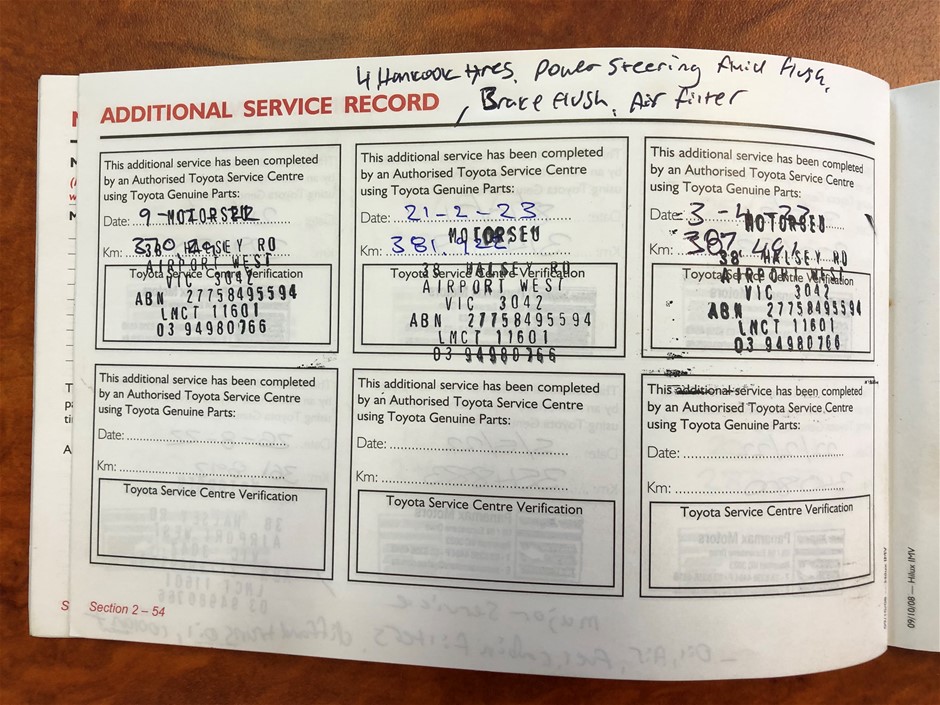 4 Hankook tyres, Power Steering fluid flush,
, Brake flush, Air Filter
ADDITIONAL SERVICE RECORD
This additional service has been completed
by an Authorised Toyota Service Centre
using Toyota Genuine Parts:
Date: 9 - MOTORSEU
Km: 370
38 HALSEY RD
AIRPORT WEST
Toyota Service Centre Verification
VIC 3042
ABN 27758495594
LMCT 11601
03 94980766
This additional service has been completed
by an Authorised Toyota Service Centre
using Toyota Genuine Parts:
Date: 21-2-23
MOTORSEU
Km: 381,922
38 HALSEY RD
Toyota Service Centre Verification
AIRPORT WEST
VIC 3042
ABN 27758495594
LMCT 11601
03 94980766
This additional service has been completed
by an Authorised Toyota Service Centre
using Toyota Genuine Parts:
Date: 3-4-23
MOTORSEU
Km: 387,491
38 HALSEY RD
Toyota Service Centre Verification
AIRPORT WEST
VIC 3042
ABN 27758495594
LMCT 11601
03 94980766
This additional service has been completed
by an Authorised Toyota Service Centre
using Toyota Genuine Parts:
Date:
Km:
Toyota Service Centre Verification
This additional service has been completed
by an Authorised Toyota Service Centre
using Toyota Genuine Parts:
Date:
Km:
Toyota Service Centre Verification
This additional service has been completed
by an Authorised Toyota Service Centre
using Toyota Genuine Parts:
Date:
Km:
Toyota Service Centre Verification
Section 2 – 54
09/10/08 — Hilux IMV